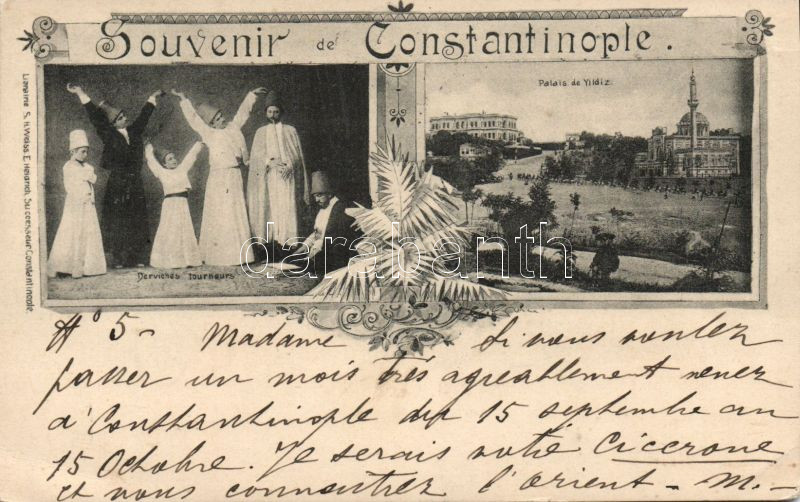 Souvenir de Constantinople.
Palais de Yildiz
Derviches tourneurs
Librairie S. H. Weiss. E. Heidrich, Successeur Constantinople
darabanth.com
No 5 - Madame Si vous voulez
passer un mois très agréablement venez
à Constantinople du 15 septembre au
15 Octobre. Je serais votre Cicerone
et vous connaitrez l'Orient - M. -